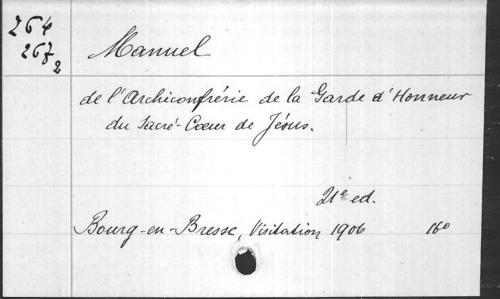 264
267
2
Manuel
de l'Archiconfrérie de la Garde d'Honneur
du Sacré-Cœur de Jésus.
21e ed.
Bourg-en-Bresse, Visitation 1906 16o